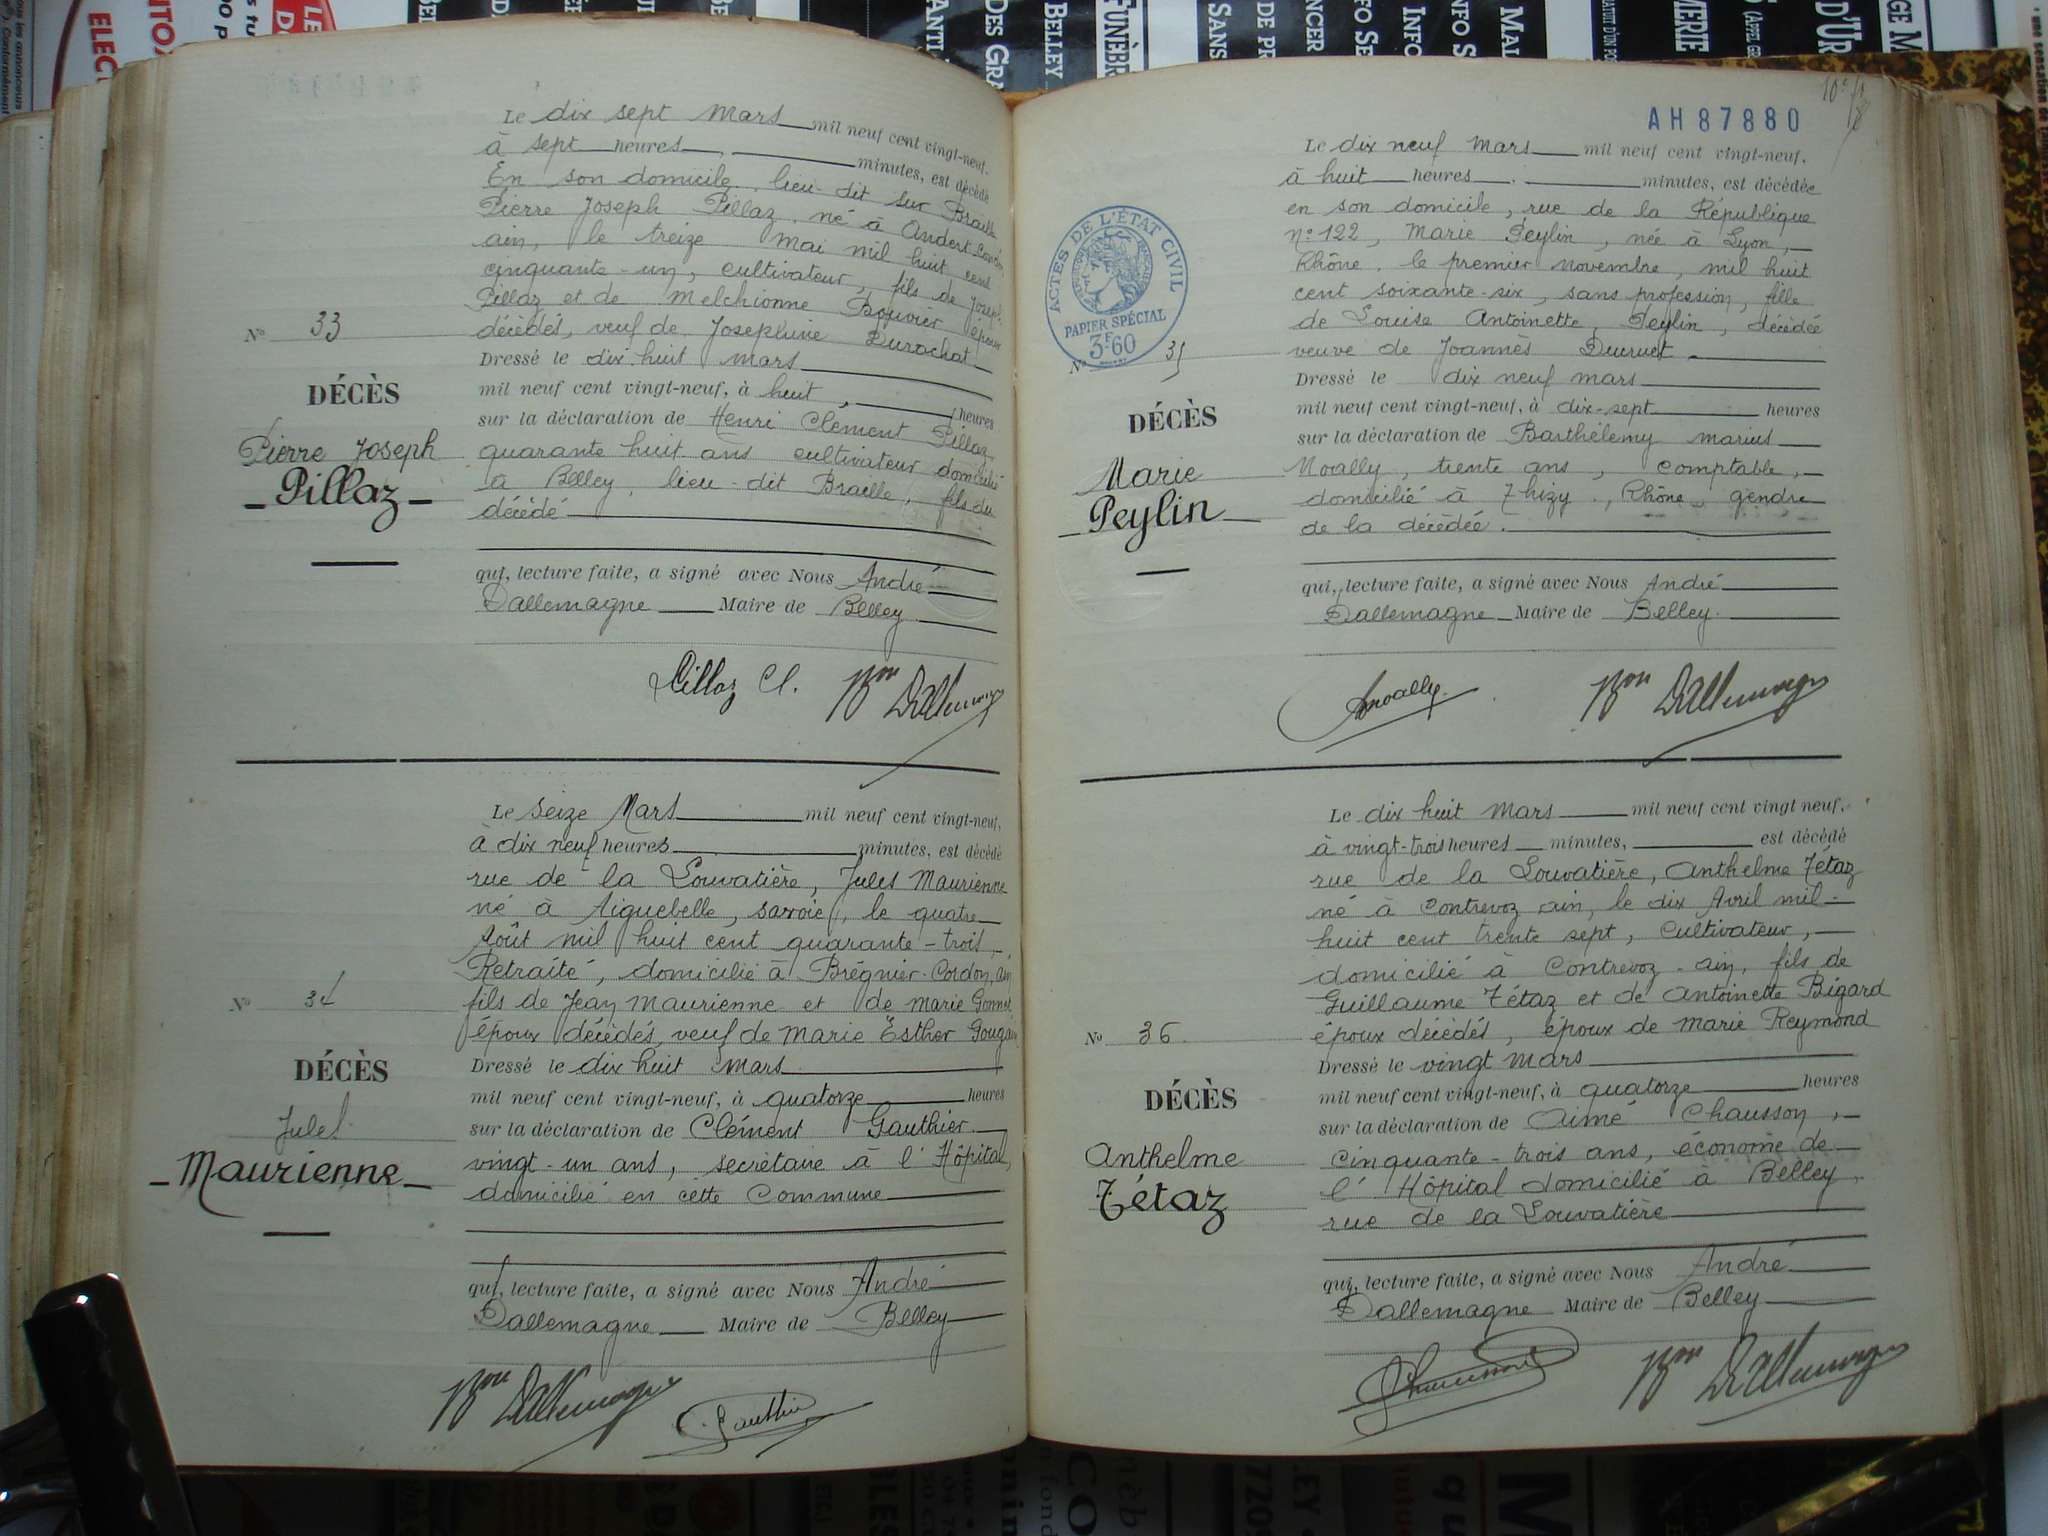 Le dix sept Mars mil neuf cent vingt-neuf,
à sept heures, minutes, est décédé
En son domicile, lieu-dit sur Braille
Pierre Joseph Pillaz, né à Andert-
ain, le treize Mai mil huit cent
cinquante-un, cultivateur, fils de Joseph
Pillaz et de Melchionne Bouvier époux
décédés, veuf de Josephine Durochat
Nº 33
Dressé le dix huit Mars
mil neuf cent vingt-neuf, à huit, heures
DÉCÈS
sur la déclaration de Henri Clément Pillaz
Pierre Joseph
quarante huit ans cultivateur domicilié
Pillaz
à Belley, lieu-dit Braille, fils du
décédé
qui, lecture faite, a signé avec Nous André
Dallemagne Maire de Belley
Pillaz Cl. Bon Dallemagne
Le seize Mars mil neuf cent vingt-neuf,
à dix neuf heures minutes, est décédé
rue de la Louvatière, Jules Maurienne
né à Aiguebelle, savoie, le quatre
Août mil huit cent quarante-trois,
Retraité, domicilié à Brégnier-Cordon, ain
Nº 34
fils de Jean Maurienne et de Marie Gonnet
époux décédés, veuf de Marie Esther
DÉCÈS
Dressé le dix huit Mars
mil neuf cent vingt-neuf, à quatorze heures
Jules
sur la déclaration de Clément Gauthier
Maurienne
vingt-un ans, secrétaire à l'Hôpital,
domicilié en cette Commune
qui, lecture faite, a signé avec Nous André
Dallemagne Maire de Belley
Bon Dallemagne Gauthier
AH 87880
Le dix neuf Mars mil neuf cent vingt-neuf,
à huit heures, minutes, est décédée
en son domicile, rue de la République
nº 122, Marie Peylin, née à Lyon,
Rhône, le premier novembre, mil huit
cent soixante-six, sans profession, fille
de Louise Antoinette, Peylin, décédée
veuve de Joannès Ducruet
ACTES DE L'ÉTAT CIVIL
PAPIER SPÉCIAL
3F60
Nº 35
Dressé le dix neuf mars
mil neuf cent vingt-neuf, à dix-sept heures
DÉCÈS
sur la déclaration de Barthélemy Marius
Marie
Moally, trente ans, comptable,
Peylin
domicilié à Thizy, Rhône, gendre
de la décédée.
qui, lecture faite, a signé avec Nous André
Dallemagne Maire de Belley.
Moally Bon Dallemagne
Le dix huit Mars mil neuf cent vingt neuf,
à vingt-trois heures minutes, est décédé
rue de la Louvatière, Anthelme Tétaz
né à Contrevoz ain, le dix Avril mil
huit cent trente sept, Cultivateur,
domicilié à Contrevoz-ain, fils de
Guillaume Tétaz et de Antoinette Bigard
Nº 36
époux décédés, époux de Marie Reymond
Dressé le vingt Mars
DÉCÈS
mil neuf cent vingt-neuf, à quatorze heures
sur la déclaration de Aimé Chausson,
Anthelme
cinquante-trois ans, économe de
Tétaz
l'Hôpital domicilié à Belley,
rue de la Louvatière
qui, lecture faite, a signé avec Nous André
Dallemagne Maire de Belley
Chausson Bon Dallemagne